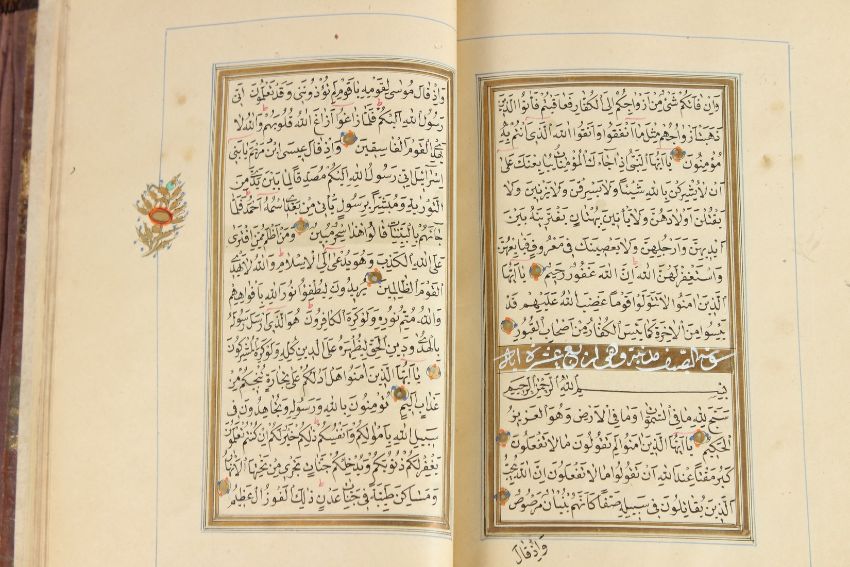 وَاِنْ فَاتَكُمْ شَىْءٌ مِنْ اَزْوَاجِكُمْ اِلَى الْكُفَّارِ فَعَاقَبْتُمْ فَاٰتُوا الَّذٖينَ
ذَهَبَتْ اَزْوَاجُهُمْ مِثْلَ مَا اَنْفَقُوا وَاتَّقُوا اللّٰهَ الَّذٖى اَنْتُمْ بِهٖ
مُؤْمِنُونَ يَا اَيُّهَا النَّبِىُّ اِذَا جَاءَكَ الْمُؤْمِنَاتُ يُبَايِعْنَكَ عَلٰى
اَنْ لَا يُشْرِكْنَ بِاللّٰهِ شَيْئًا وَلَا يَسْرِقْنَ وَلَا يَزْنٖينَ وَلَا
يَقْتُلْنَ اَوْلَادَهُنَّ وَلَا يَاْتٖينَ بِبُهْتَانٍ يَفْتَرٖينَهُ بَيْنَ
اَيْدٖيهِنَّ وَاَرْجُلِهِنَّ وَلَا يَعْصٖينَكَ فٖى مَعْرُوفٍ فَبَايِعْهُنَّ
وَاسْتَغْفِرْ لَهُنَّ اللّٰهَ اِنَّ اللّٰهَ غَفُورٌ رَحٖيمٌ يَا اَيُّهَا
الَّذٖينَ اٰمَنُوا لَا تَتَوَلَّوْا قَوْمًا غَضِبَ اللّٰهُ عَلَيْهِمْ قَدْ
يَئِسُوا مِنَ الْاٰخِرَةِ كَمَا يَئِسَ الْكُفَّارُ مِنْ اَصْحَابِ الْقُبُورِ
سورة الصف مدنية وهى اربع عشرة اية
بِسْمِ اللّٰهِ الرَّحْمٰنِ الرَّحٖيمِ
سَبَّحَ لِلّٰهِ مَا فِى السَّمٰوَاتِ وَمَا فِى الْاَرْضِ وَهُوَ الْعَزٖيزُ
الْحَكٖيمُ يَا اَيُّهَا الَّذٖينَ اٰمَنُوا لِمَ تَقُولُونَ مَا لَا تَفْعَلُونَ
كَبُرَ مَقْتًا عِنْدَ اللّٰهِ اَنْ تَقُولُوا مَا لَا تَفْعَلُونَ اِنَّ اللّٰهَ يُحِبُّ
الَّذٖينَ يُقَاتِلُونَ فٖى سَبٖيلِهٖ صَفًّا كَاَنَّهُمْ بُنْيَانٌ مَرْصُوصٌ
وَاِذْ قَالَ
وَاِذْ قَالَ مُوسٰى لِقَوْمِهٖ يَا قَوْمِ لِمَ تُؤْذُونَنٖى وَقَدْ تَعْلَمُونَ اَنّٖى
رَسُولُ اللّٰهِ اِلَيْكُمْ فَلَمَّا زَاغُوا اَزَاغَ اللّٰهُ قُلُوبَهُمْ وَاللّٰهُ لَا
يَهْدِى الْقَوْمَ الْفَاسِقٖينَ وَاِذْ قَالَ عٖيسَى ابْنُ مَرْيَمَ يَا بَنٖى
اِسْرَائٖلَ اِنّٖى رَسُولُ اللّٰهِ اِلَيْكُمْ مُصَدِّقًا لِمَا بَيْنَ يَدَىَّ مِنَ
التَّوْرٰيةِ وَمُبَشِّرًا بِرَسُولٍ يَاْتٖى مِنْ بَعْدِى اسْمُهُ اَحْمَدُ فَلَمَّا
جَاءَهُمْ بِالْبَيِّنَاتِ قَالُوا هٰذَا سِحْرٌ مُبٖينٌ وَمَنْ اَظْلَمُ مِمَّنِ افْتَرٰى
عَلَى اللّٰهِ الْكَذِبَ وَهُوَ يُدْعٰى اِلَى الْاِسْلَامِ وَاللّٰهُ لَا يَهْدِى
الْقَوْمَ الظَّالِمٖينَ يُرٖيدُونَ لِيُطْفِؤُا نُورَ اللّٰهِ بِاَفْوَاهِهِمْ
وَاللّٰهُ مُتِمُّ نُورِهٖ وَلَوْ كَرِهَ الْكَافِرُونَ هُوَ الَّذٖى اَرْسَلَ رَسُولَهُ
بِالْهُدٰى وَدٖينِ الْحَقِّ لِيُظْهِرَهُ عَلَى الدّٖينِ كُلِّهٖ وَلَوْ كَرِهَ الْمُشْرِكُونَ
يَا اَيُّهَا الَّذٖينَ اٰمَنُوا هَلْ اَدُلُّكُمْ عَلٰى تِجَارَةٍ تُنْجٖيكُمْ مِنْ
عَذَابٍ اَلٖيمٍ تُؤْمِنُونَ بِاللّٰهِ وَرَسُولِهٖ وَتُجَاهِدُونَ فٖى
سَبٖيلِ اللّٰهِ بِاَمْوَالِكُمْ وَاَنْفُسِكُمْ ذٰلِكُمْ خَيْرٌ لَكُمْ اِنْ كُنْتُمْ تَعْلَمُونَ
يَغْفِرْ لَكُمْ ذُنُوبَكُمْ وَيُدْخِلْكُمْ جَنَّاتٍ تَجْرٖى مِنْ تَحْتِهَا الْاَنْهَارُ
وَمَسَاكِنَ طَيِّبَةً فٖى جَنَّاتِ عَدْنٍ ذٰلِكَ الْفَوْزُ الْعَظٖيمُ